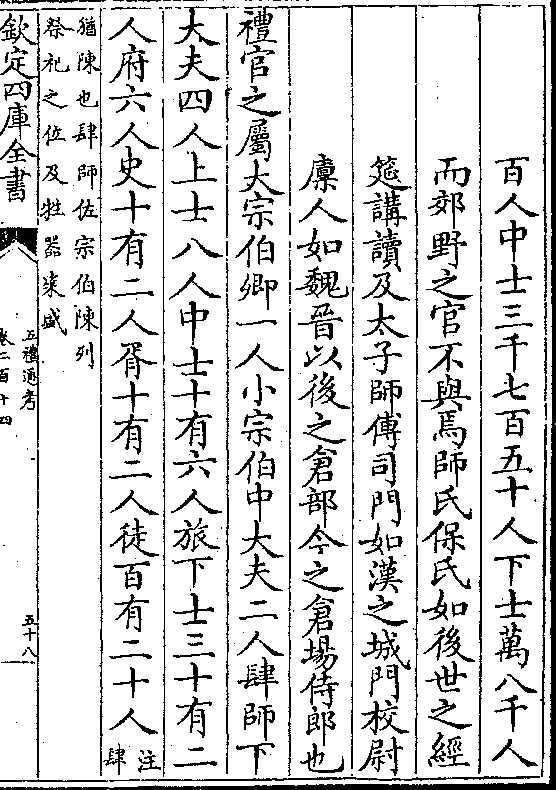 百人中士三千七百五十人下士萬八千人
而郊野之官不與焉師氏保氏如後世之經
筵講讀及太子師傅司門如漢之城門校尉
廩人如魏晉以後之倉部今之倉場侍郎也
禮官之屬大宗伯卿一人小宗伯中大夫二人肆師下
大夫四人上士八人中士十有六人旅下士三十有二
人府六人史十有二人胥十有二人徒百有二十人注肆
猶陳也肆師佐宗伯陳列
祭祀之位及牲器粢盛
欽定四庫全書
五禮通考
卷二百十四
五十八